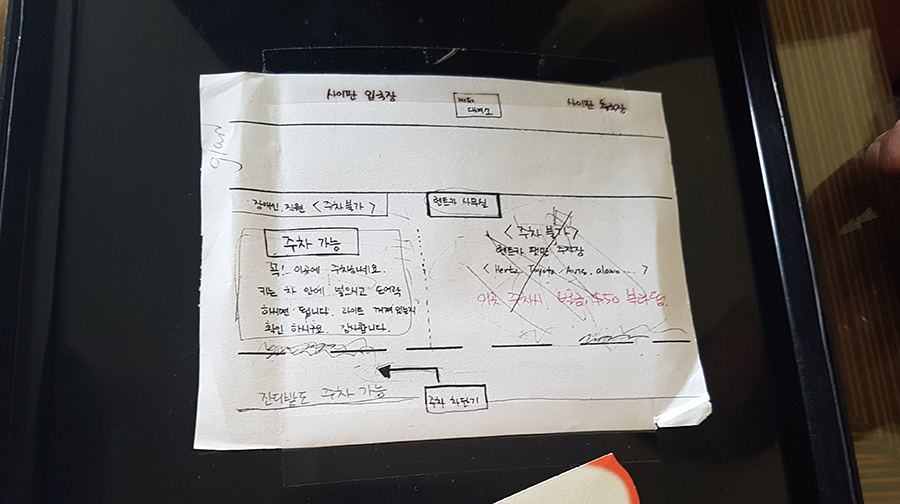 사이판 입국장
Hertz
대여소
사이판 출국장
glan
장애인, 직원 < 주차불가 >
렌트카 사무실
주차 가능
꼭! 이곳에 주차하세요.
키는 차 안에 넣으시고 도어락
하시면 됩니다. 라이트 꺼져있는지
확인 하시구요. 감사합니다.
< 주차 불가 >
렌트카 팻말 주차장
< Hertz, Toyota, Avis, alamo ... >
이곳 주차시 벌금 $50 부과됨.
잔디밭도 주차 가능
주차 차단기